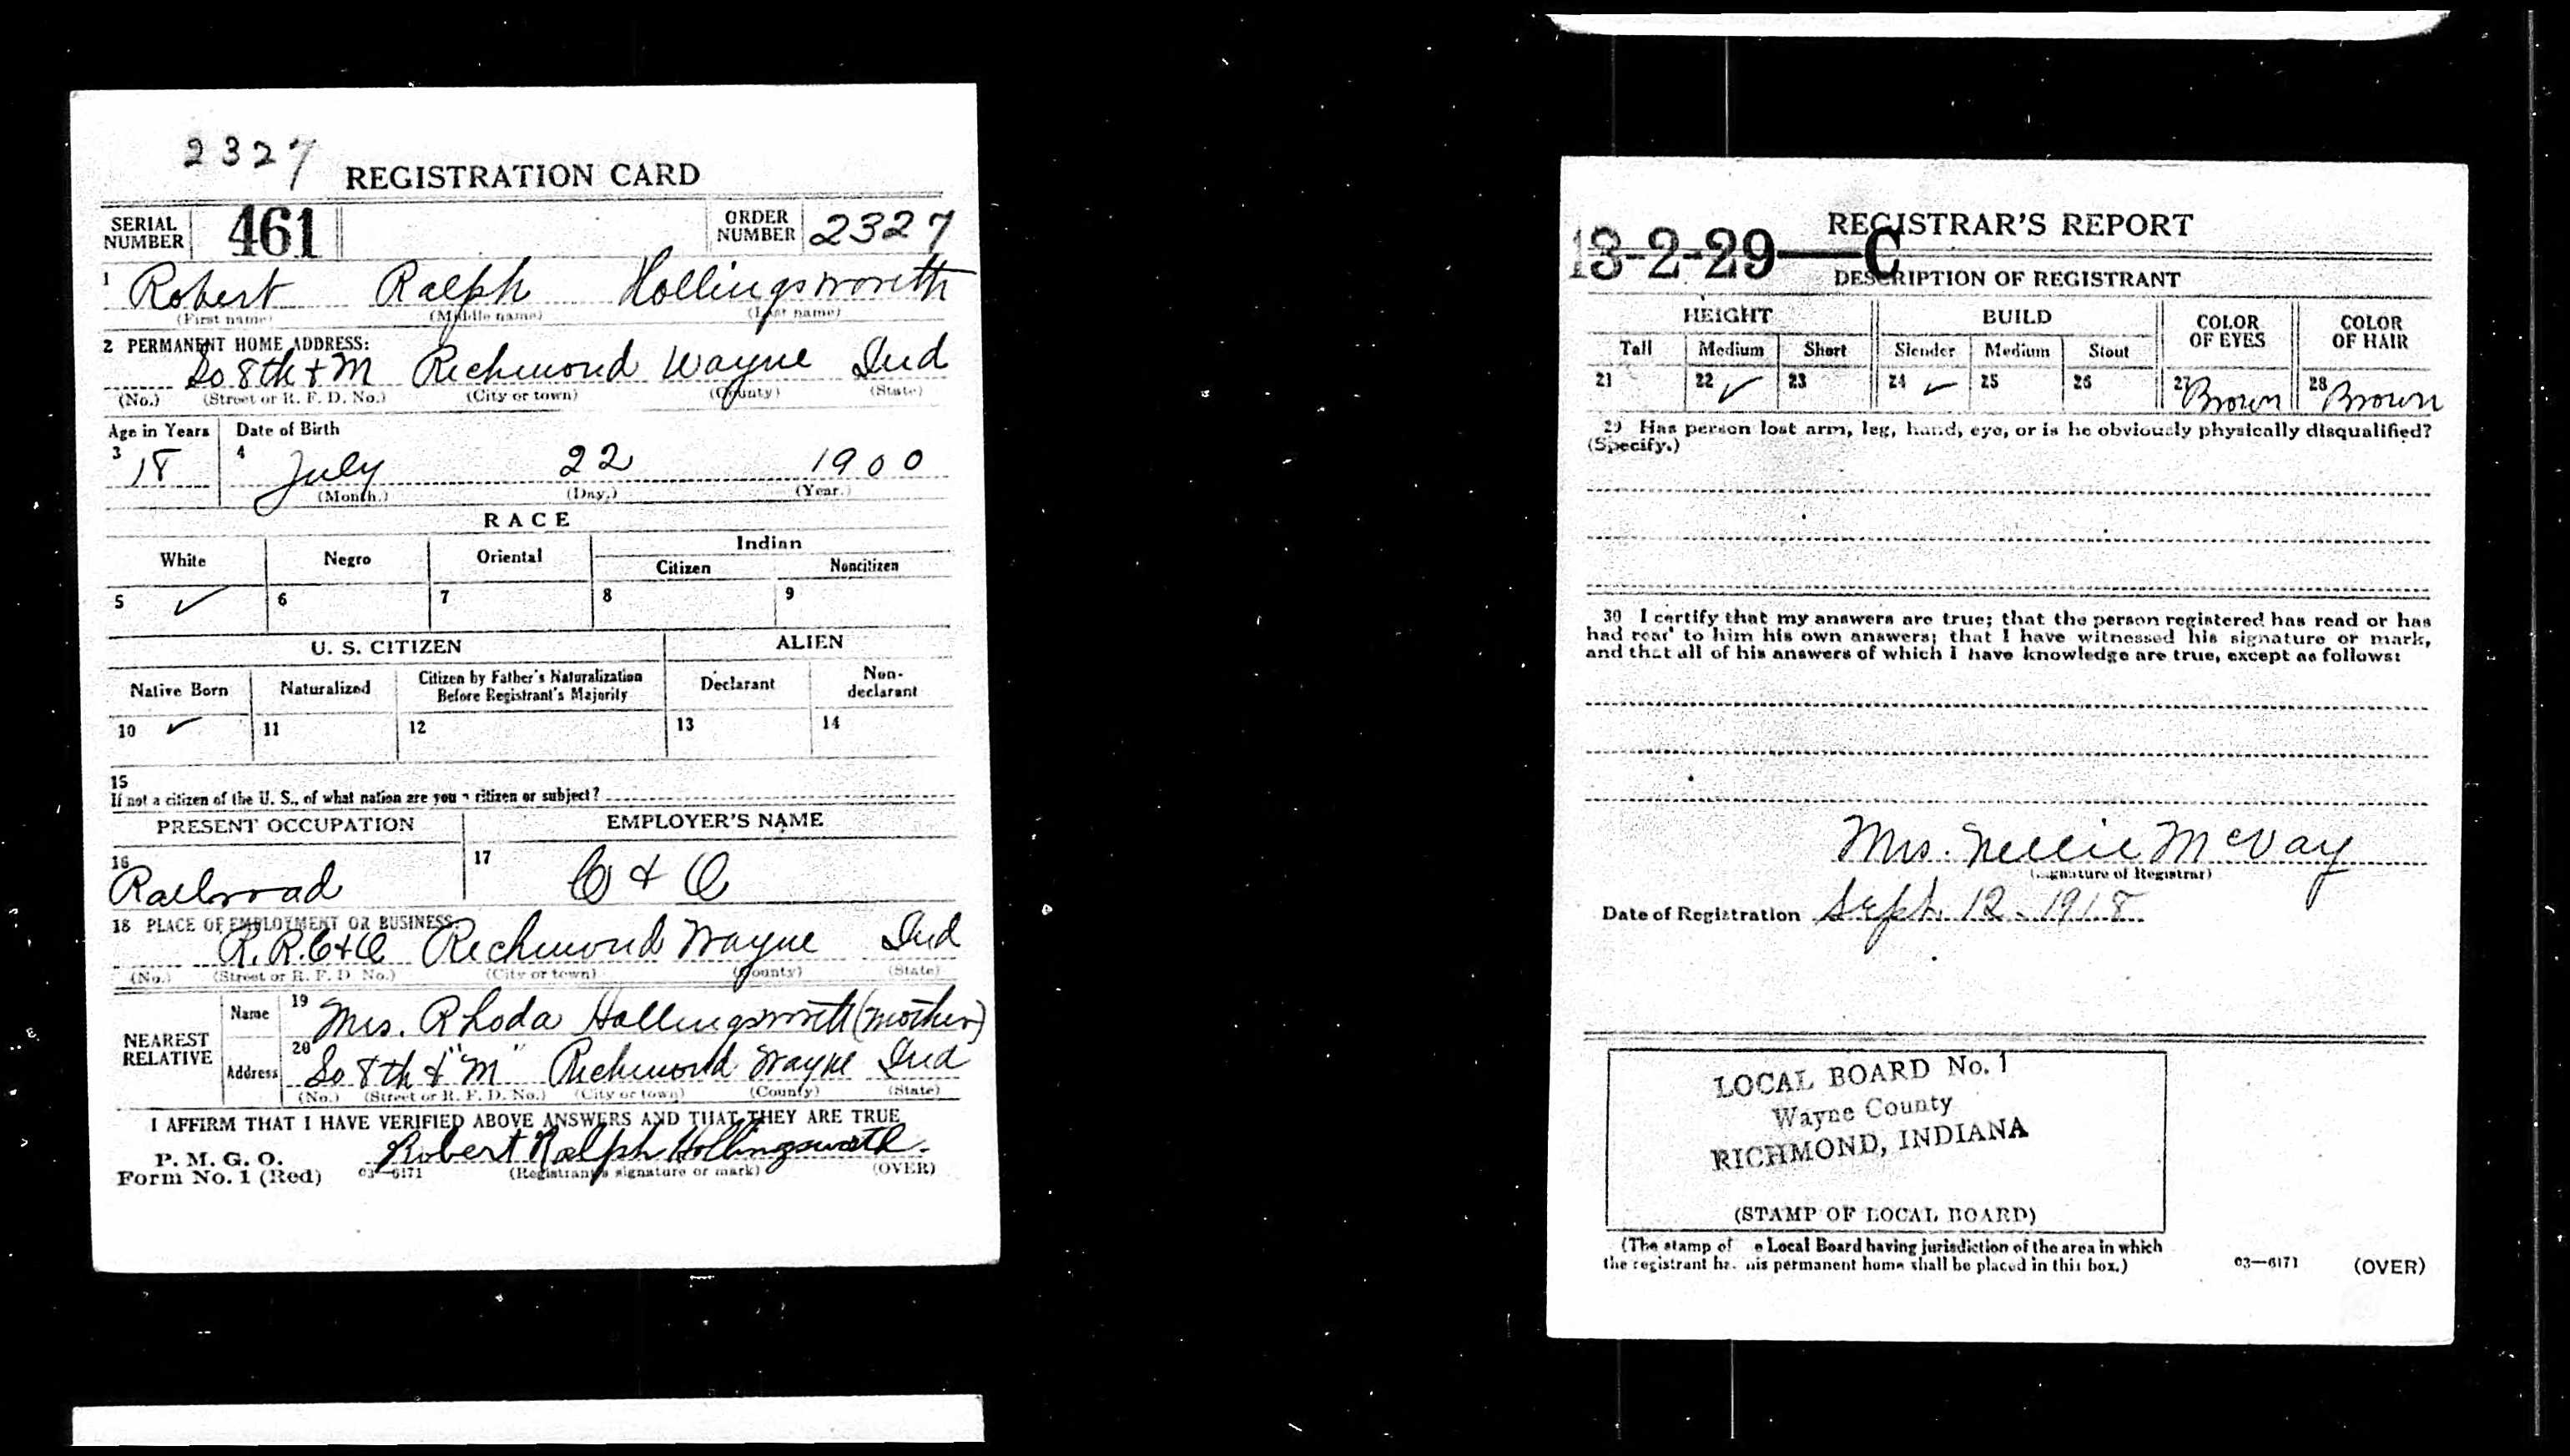 2327
REGISTRATION CARD
SERIAL NUMBER 461 ORDER NUMBER 2327
1 Robert Ralph Hollingsworth
(First name) (Middle name) (Last name)
2 PERMANENT HOME ADDRESS:
So 8th + M Richmond Wayne Ind
(No.) (Street or R. F. D. No.) (City or town) (County) (State)
Age in Years Date of Birth
3 18 4 July 22 1900
(Month.) (Day.) (Year.)
RACE
White Negro Oriental Indian
Citizen Noncitizen
5 ✓ 6 7 8 9
U. S. CITIZEN ALIEN
Native Born Naturalized Citizen by Father's Naturalization Before Registrant's Majority Declarant Non-declarant
10 ✓ 11 12 13 14
15
If not a citizen of the U. S., of what nation are you a citizen or subject?
PRESENT OCCUPATION EMPLOYER'S NAME
16 Railroad 17 C + O
18 PLACE OF EMPLOYMENT OR BUSINESS:
R. R. C + O Richmond Wayne Ind
(No.) (Street or R. F. D. No.) (City or town) (County) (State)
NEAREST RELATIVE
Name 19 Mrs. Rhoda Hollingsworth (mother)
Address 20 So 8th + "M" Richmond Wayne Ind
(No.) (Street or R. F. D. No.) (City or town) (County) (State)
I AFFIRM THAT I HAVE VERIFIED ABOVE ANSWERS AND THAT THEY ARE TRUE
P. M. G. O.
Form No. 1 (Red) 03—6171 Robert Ralph Hollingsworth.
(Registrant's signature or mark) (OVER)
REGISTRAR'S REPORT
13-2-29—C
DESCRIPTION OF REGISTRANT
HEIGHT BUILD COLOR OF EYES COLOR OF HAIR
Tall Medium Short Slender Medium Stout
21 22 ✓ 23 24 ✓ 25 26 27 Brown 28 Brown
29 Has person lost arm, leg, hand, eye, or is he obviously physically disqualified?
(Specify.)
30 I certify that my answers are true; that the person registered has read or has
had read to him his own answers; that I have witnessed his signature or mark,
and that all of his answers of which I have knowledge are true, except as follows:
Mrs. Nellie McVay
(Signature of Registrar)
Date of Registration Sept. 12 - 1918
LOCAL BOARD No. 1
Wayne County
RICHMOND, INDIANA
(STAMP OF LOCAL BOARD)
(The stamp of e Local Board having jurisdiction of the area in which
the registrant ha his permanent home shall be placed in this box.)
03—6171 (OVER)